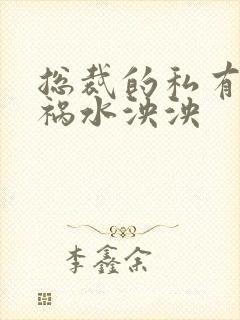 总裁的私有
祸水泱泱
李鑫余